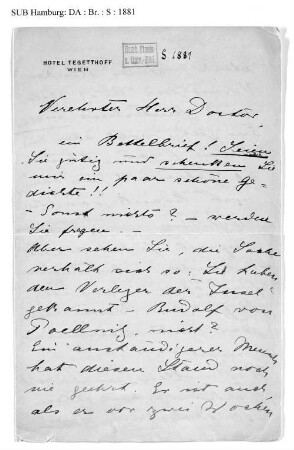 SUB Hamburg: DA : Br. : S : 1881
HOTEL TEGETTHOFF
WIEN
S 1881
Verehrter Herr Doctor,
ein Bettelbrief! Seien
Sie gütig und schenken Sie
mir ein paar schöne Ge-
dichte!!
- Sonst nichts? - werden
Sie fragen -
Aber sehen Sie, die Sache
verhält sich so: Sie haben
den Verleger der Insel
gekannt - Rudolf von
Poellnitz, nicht?
Ein anständigerer Mensch
hat diesen Stand noch
nie geehrt. Er ist auch
als er vor zwei Wochen